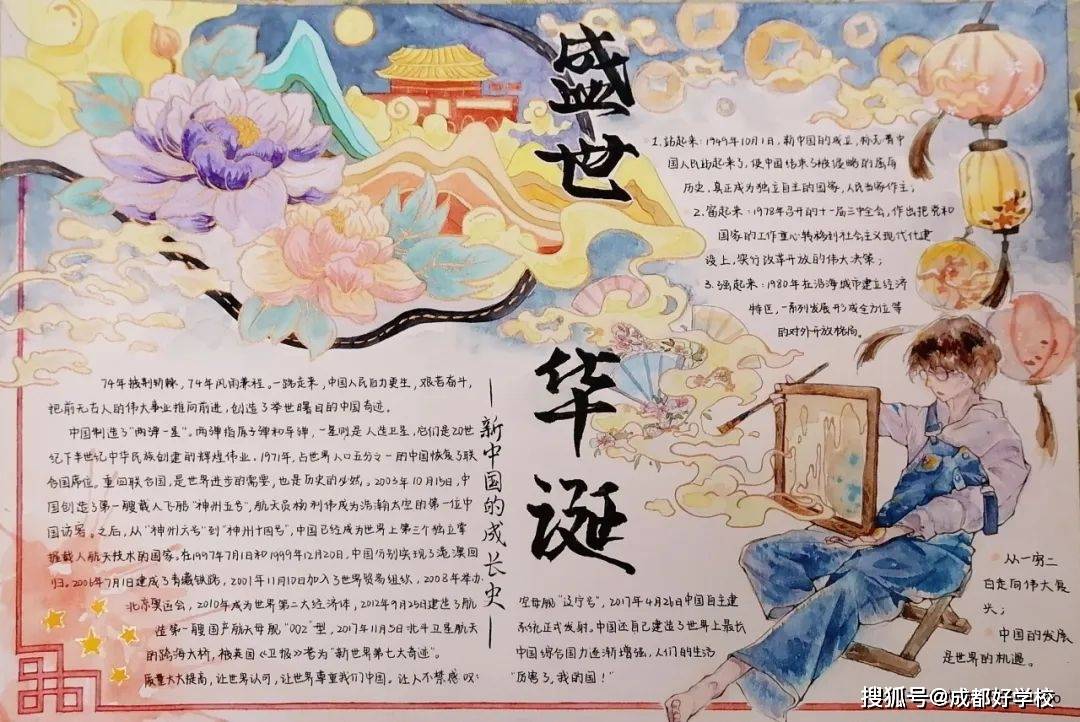 盛世
华诞
—新中国的成长史—
1.站起来：1949年10月1日，新中国的成立，标志着中
国人民站起来了，使中国结束了被侵略的屈辱
历史，真正成为独立自主的国家，人民当家作主；
2.富起来：1978年召开的十一届三中全会，作出把党和
国家的工作重心转移到社会主义现代化建
设上，实行改革开放的伟大决策；
3.强起来：1980年在沿海城市建立经济
特区，一系列发展形成全方位等
的对外开放格局。
74年披荆斩棘，74年风雨兼程。一路走来，中国人民自力更生，艰苦奋斗，
把前无古人的伟大事业推向前进，创造了举世瞩目的中国奇迹。
中国制造了“两弹一星”。两弹指原子弹和导弹，一星则是人造卫星，它们是20世
纪下半世纪中华民族创建的辉煌伟业。1971年，占世界人口五分之一的中国恢复了联
合国席位，重回联合国，是世界进步的需要，也是历史的必然。2003年10月15日，中
国创造了第一艘载人飞船“神州五号”，航天员杨利伟成为浩瀚太空的第一位中
国访客。之后，从“神州六号”到“神州十四号”，中国已经成为世界上第三个独立掌
握载人航天技术的国家。在1997年7月1日和1999年12月20日，中国分别实现了港、澳回
归。2006年7月1日建成了青藏铁路，2001年11月10日加入了世界贸易组织，2008年举办
北京奥运会，2010年成为世界第二大经济体，2012年9月25日建造了航空母舰“辽宁号”，2017年4月26日中国自主建
造第一艘国产航天母舰“002”型，2017年11月5日北斗卫星航天系统正式发射。中国还自己建造了世界上最长
的跨海大桥，被英国《卫报》誉为“新世界第七大奇迹”。中国综合国力逐渐增强，人们的生活
质量大大提高，让世界认可，让世界尊重我们中国。让人不禁感叹：“厉害了，我的国！”
从一穷二
白走向伟大复
兴；
中国的发展
是世界的机遇。
搜狐号@成都好学校